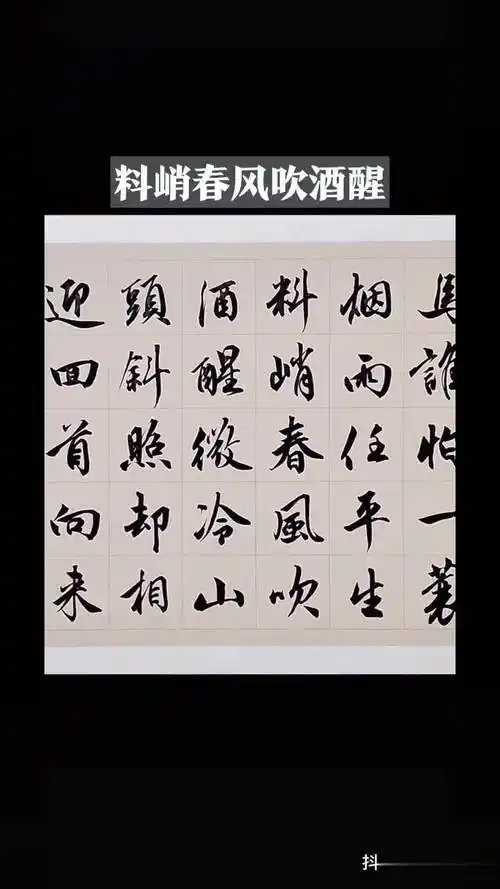 料峭春风吹酒醒
馬誰怕一蓑
烟雨任平生
料峭春風吹
酒醒微冷山
頭斜照却相
迎回首向来
抖